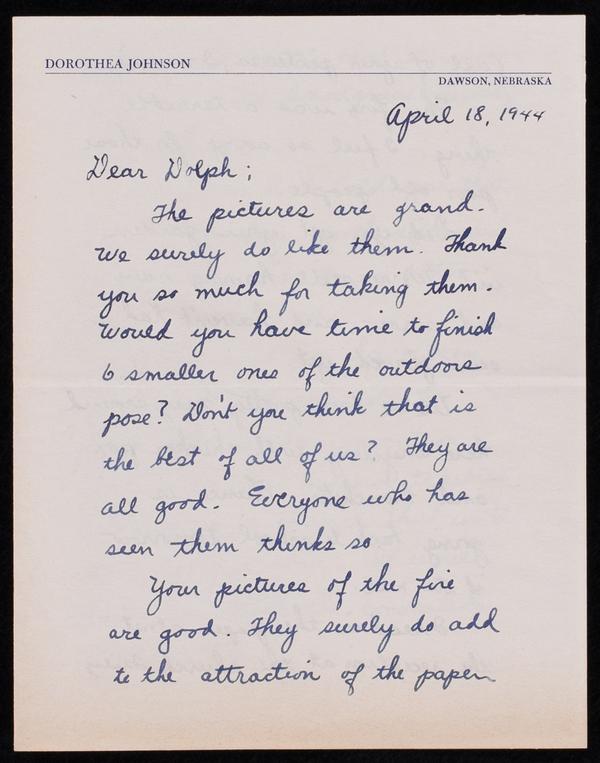 DOROTHEA JOHNSON
DAWSON, NEBRASKA
April 18, 1944
Dear Dolph;
The pictures are grand.
We surely do like them. Thank
you so much for taking them.
Would you have time to finish
6 smaller ones of the outdoors
pose? Don't you think that is
the best of all of us? They are
all good. Everyone who has
seen them thinks so
Your pictures of the fire
are good. They surely do add
to the attraction of the paper